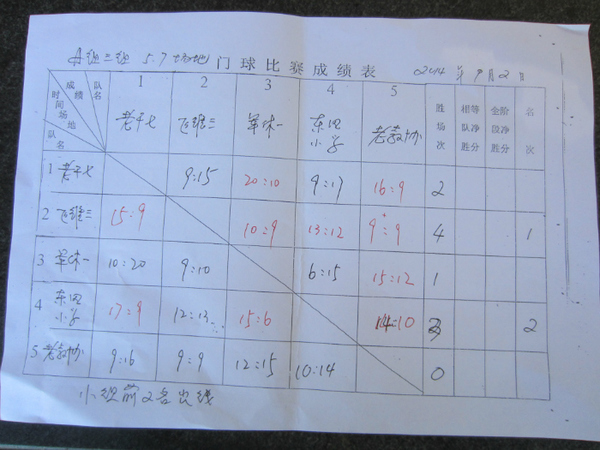 A组三组 5.7场地 门球比赛成绩表 2014年9月2日
成绩 时间 场地 队名 队名 1 2 3 4 5 胜场次 相等队净胜分 全阶段净胜分 名次
老干七 飞雄三 军休一 东四小学 老教协
1 老干七 9:15 20:10 9:17 16:9 2
2 飞雄三 15:9 10:9 13:12 9+:9 4 1
3 军休一 10:20 9:10 6:15 15:12 1
4 东四小学 17:9 12:13 15:6 14:10 3 2
5 老教协 9:16 9:9 12:15 10:14 0
小组前2名出线